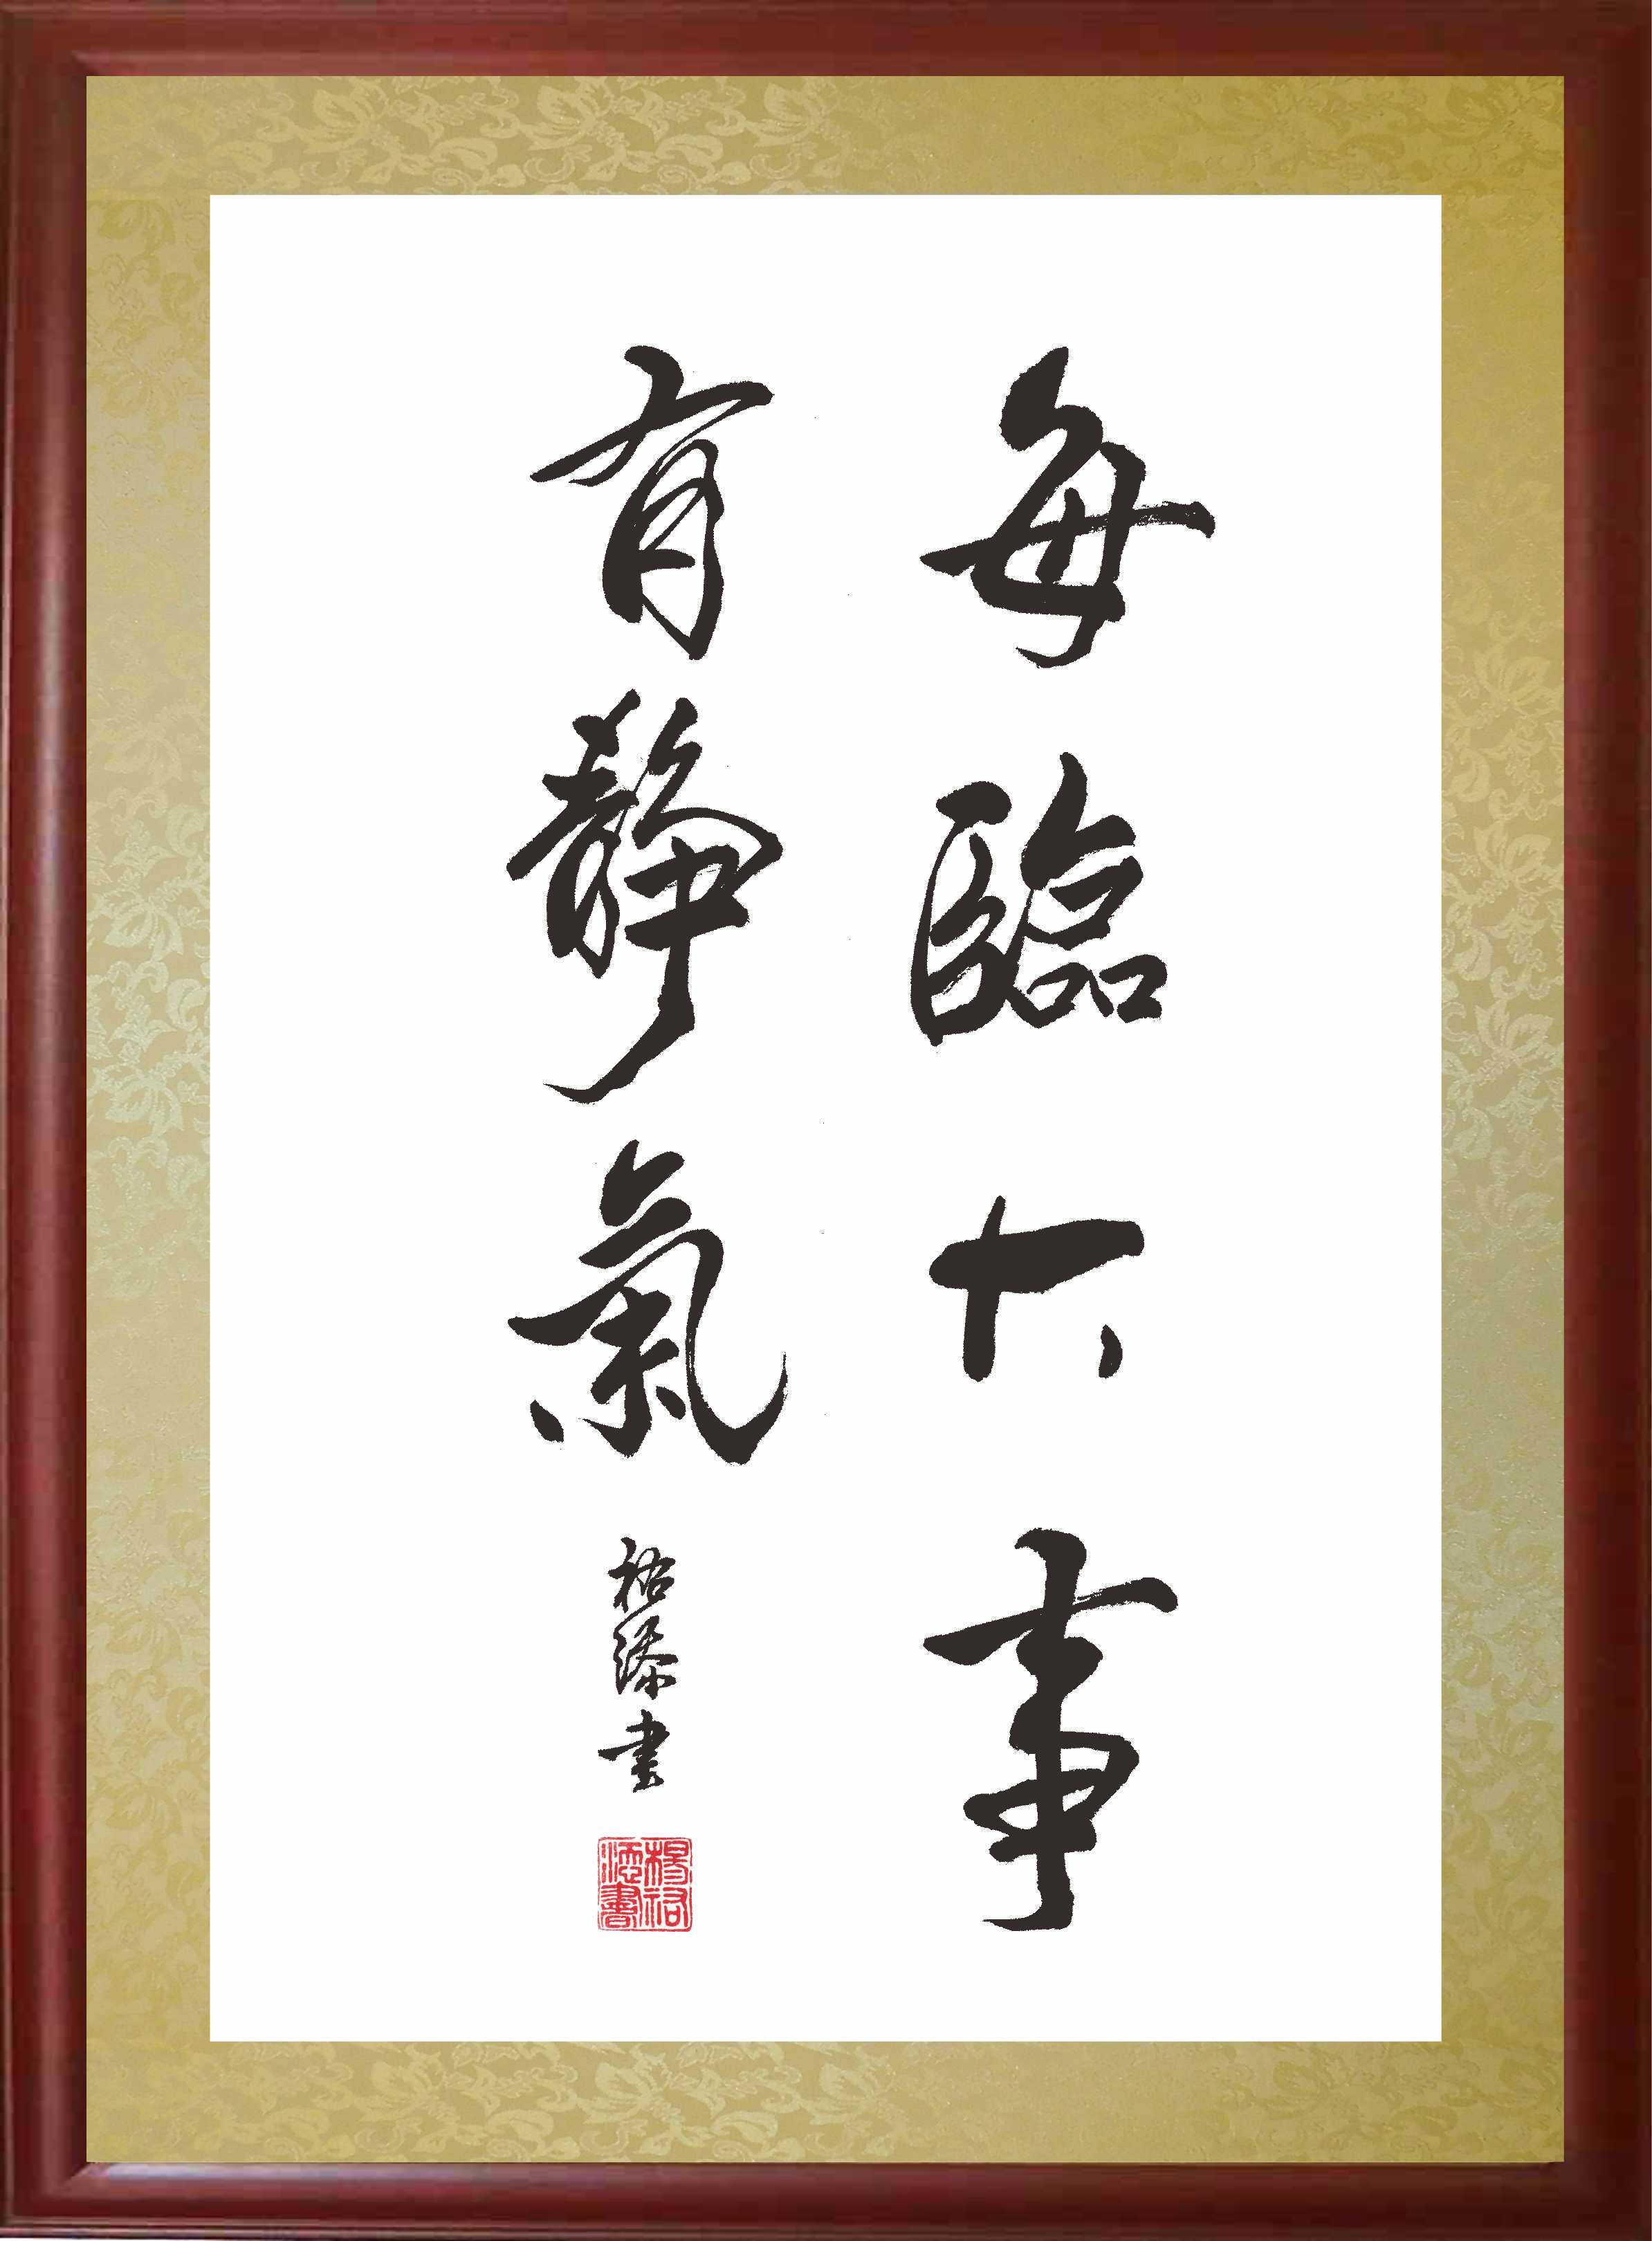 每臨大事
有靜氣
祐添書
楊祐
添書